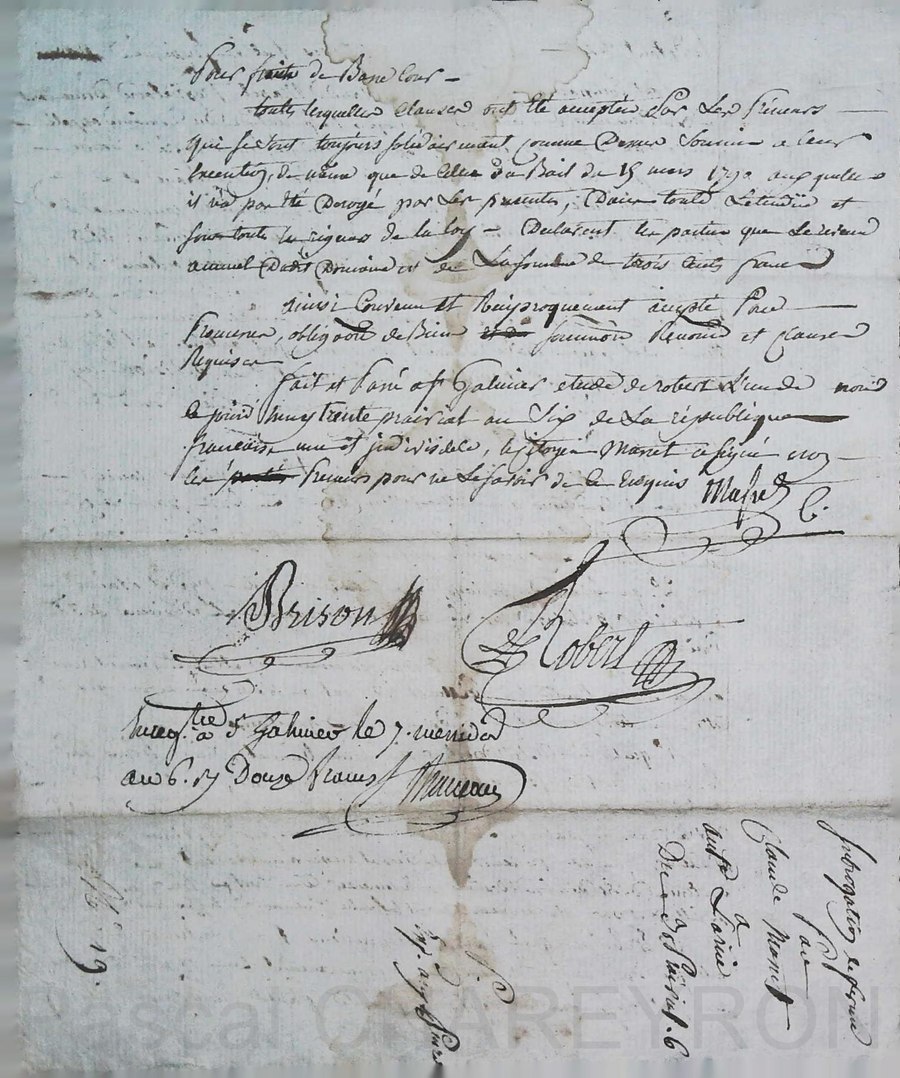 Pour fruits de Basse Cour —
touts lesquelles Clauses ont été acceptées Par Les Fermiers —
qui se sont toujours solidairement comme Dessus Soumis a leurs
execution, de même que de Celles Du Bail du 15 mars 1790 auxquelles
il n'a pas été Derogé par Les presentes, Dans toute L'etendue et
sous toute la rigueur de la loy — Declarent les parties que Le revenu
annuel Dudit Domaine est de La Somme de trois Cents francs
ainsi Convenu et Reciproquement accepté Pour
obligation de Biens soumission Renoncé et Clauses
Requises
fait et Passé a St Galmier etude de robert L'un de nous
ce jourd'huy trente prairial an Six de La république
francaise une et indivisible, le citoyen Marcet a signé non
les fermiers pour ne Le Savoir de ce Enquis
Brison
Robert
Enregtré a St Galmier le 7. messidor
an 6. Douze francs
Subrogation de ferme
par
Claude Marcet
a
Du 30 Prairial. 6
19.
Pascal CHAREYRON